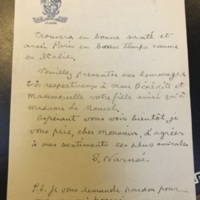 trouvera en bonne santé et
aura Paris en beau temps comme
en Italie.
Veuillez présenter mes hommages
très respectueux à chère Bénédite et
mademoiselle votre fille ainsi qu'à
madame de
Espérant vous voir bientôt, je
vous prie, cher monsieur, d'agréer
à mes sentiments les plus amicales
P.S. je vous demande pardon pour